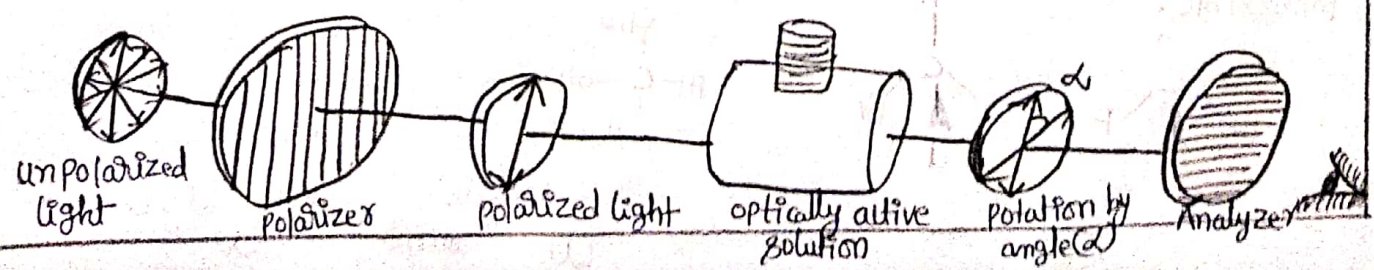 α
unpolarized
light
polarizer
polarized light
optically ative
solution
potation by
angle(α)
Analyzer